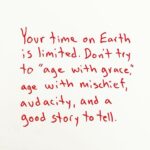 Your time on Earth
is limited. Don't try
to "age with grace,"
age with mischief,
audacity, and a
good story to tell.